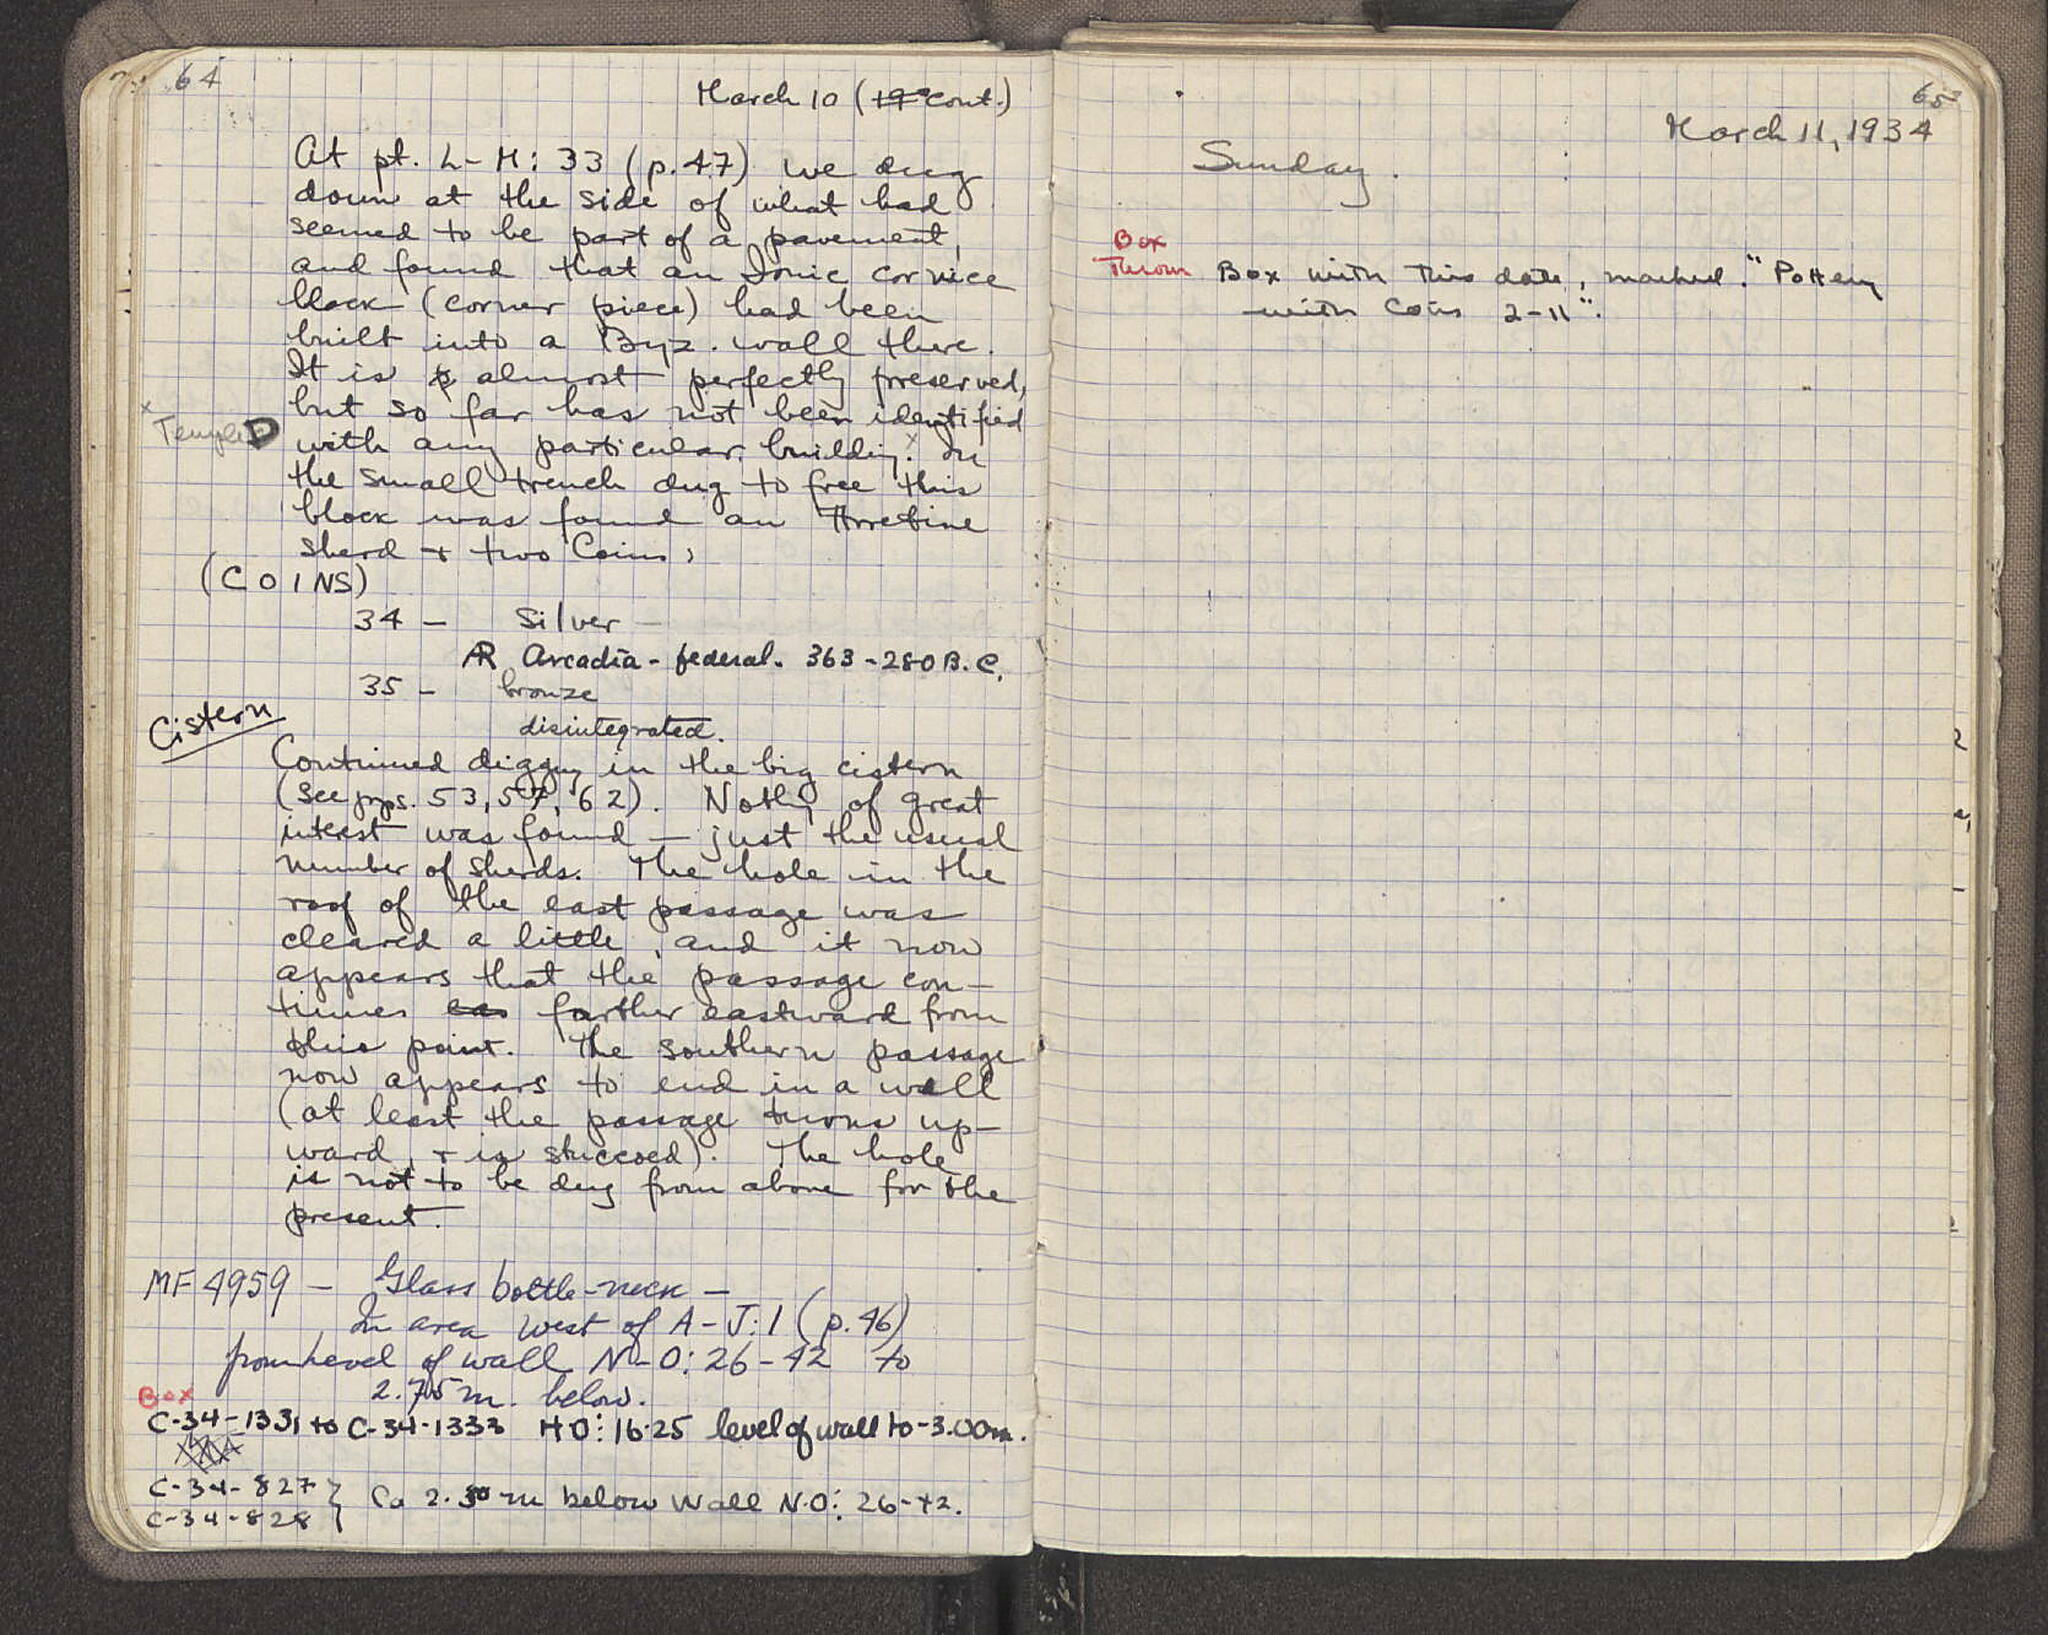 64
March 10 (cont.)
At pt. L-M: 33 (p.47) we dug
down at the side of what had
seemed to be part of a pavement,
and found that an Ionic cornice
block (corner piece) had been
built into a Byz. wall there.
It is almost perfectly preserved,
but so far has not been identified
x Temple D
with any particular building.x In
the small trench dug to free this
block was found an Arretine
sherd + two Coins,
(COINS)
34 - Silver -
AR Arcadia - federal. 363-280 B.C.
35 - bronze
disintegrated.
Cistern
Continued digging in the big cistern
(see pps. 53, 57, 62). Nothing of great
interest was found - just the usual
number of sherds. The hole in the
roof of the east passage was
cleared a little, and it now
appears that the passage con-
tinues farther eastward from
this point. The southern passage
now appears to end in a wall
(at least the passage turns up-
ward, + is stuccoed). The hole
is not to be dug from above for the
present.
MF 4959 - Glass bottle-neck -
In area west of A-J:1 (p.46)
from level of wall N-O: 26-42 to
2.75 m. below.
Box
C-34-1331 to C-34-1333 HO: 16-25 level of wall to -3.00m.
C-34-827 }
C-34-828 } Ca 2.50 m below Wall N.O: 26-42.
65
March 11, 1934
Sunday.
Box
Thrown Box with this date, marked "Pottery
with Coins 2-11".